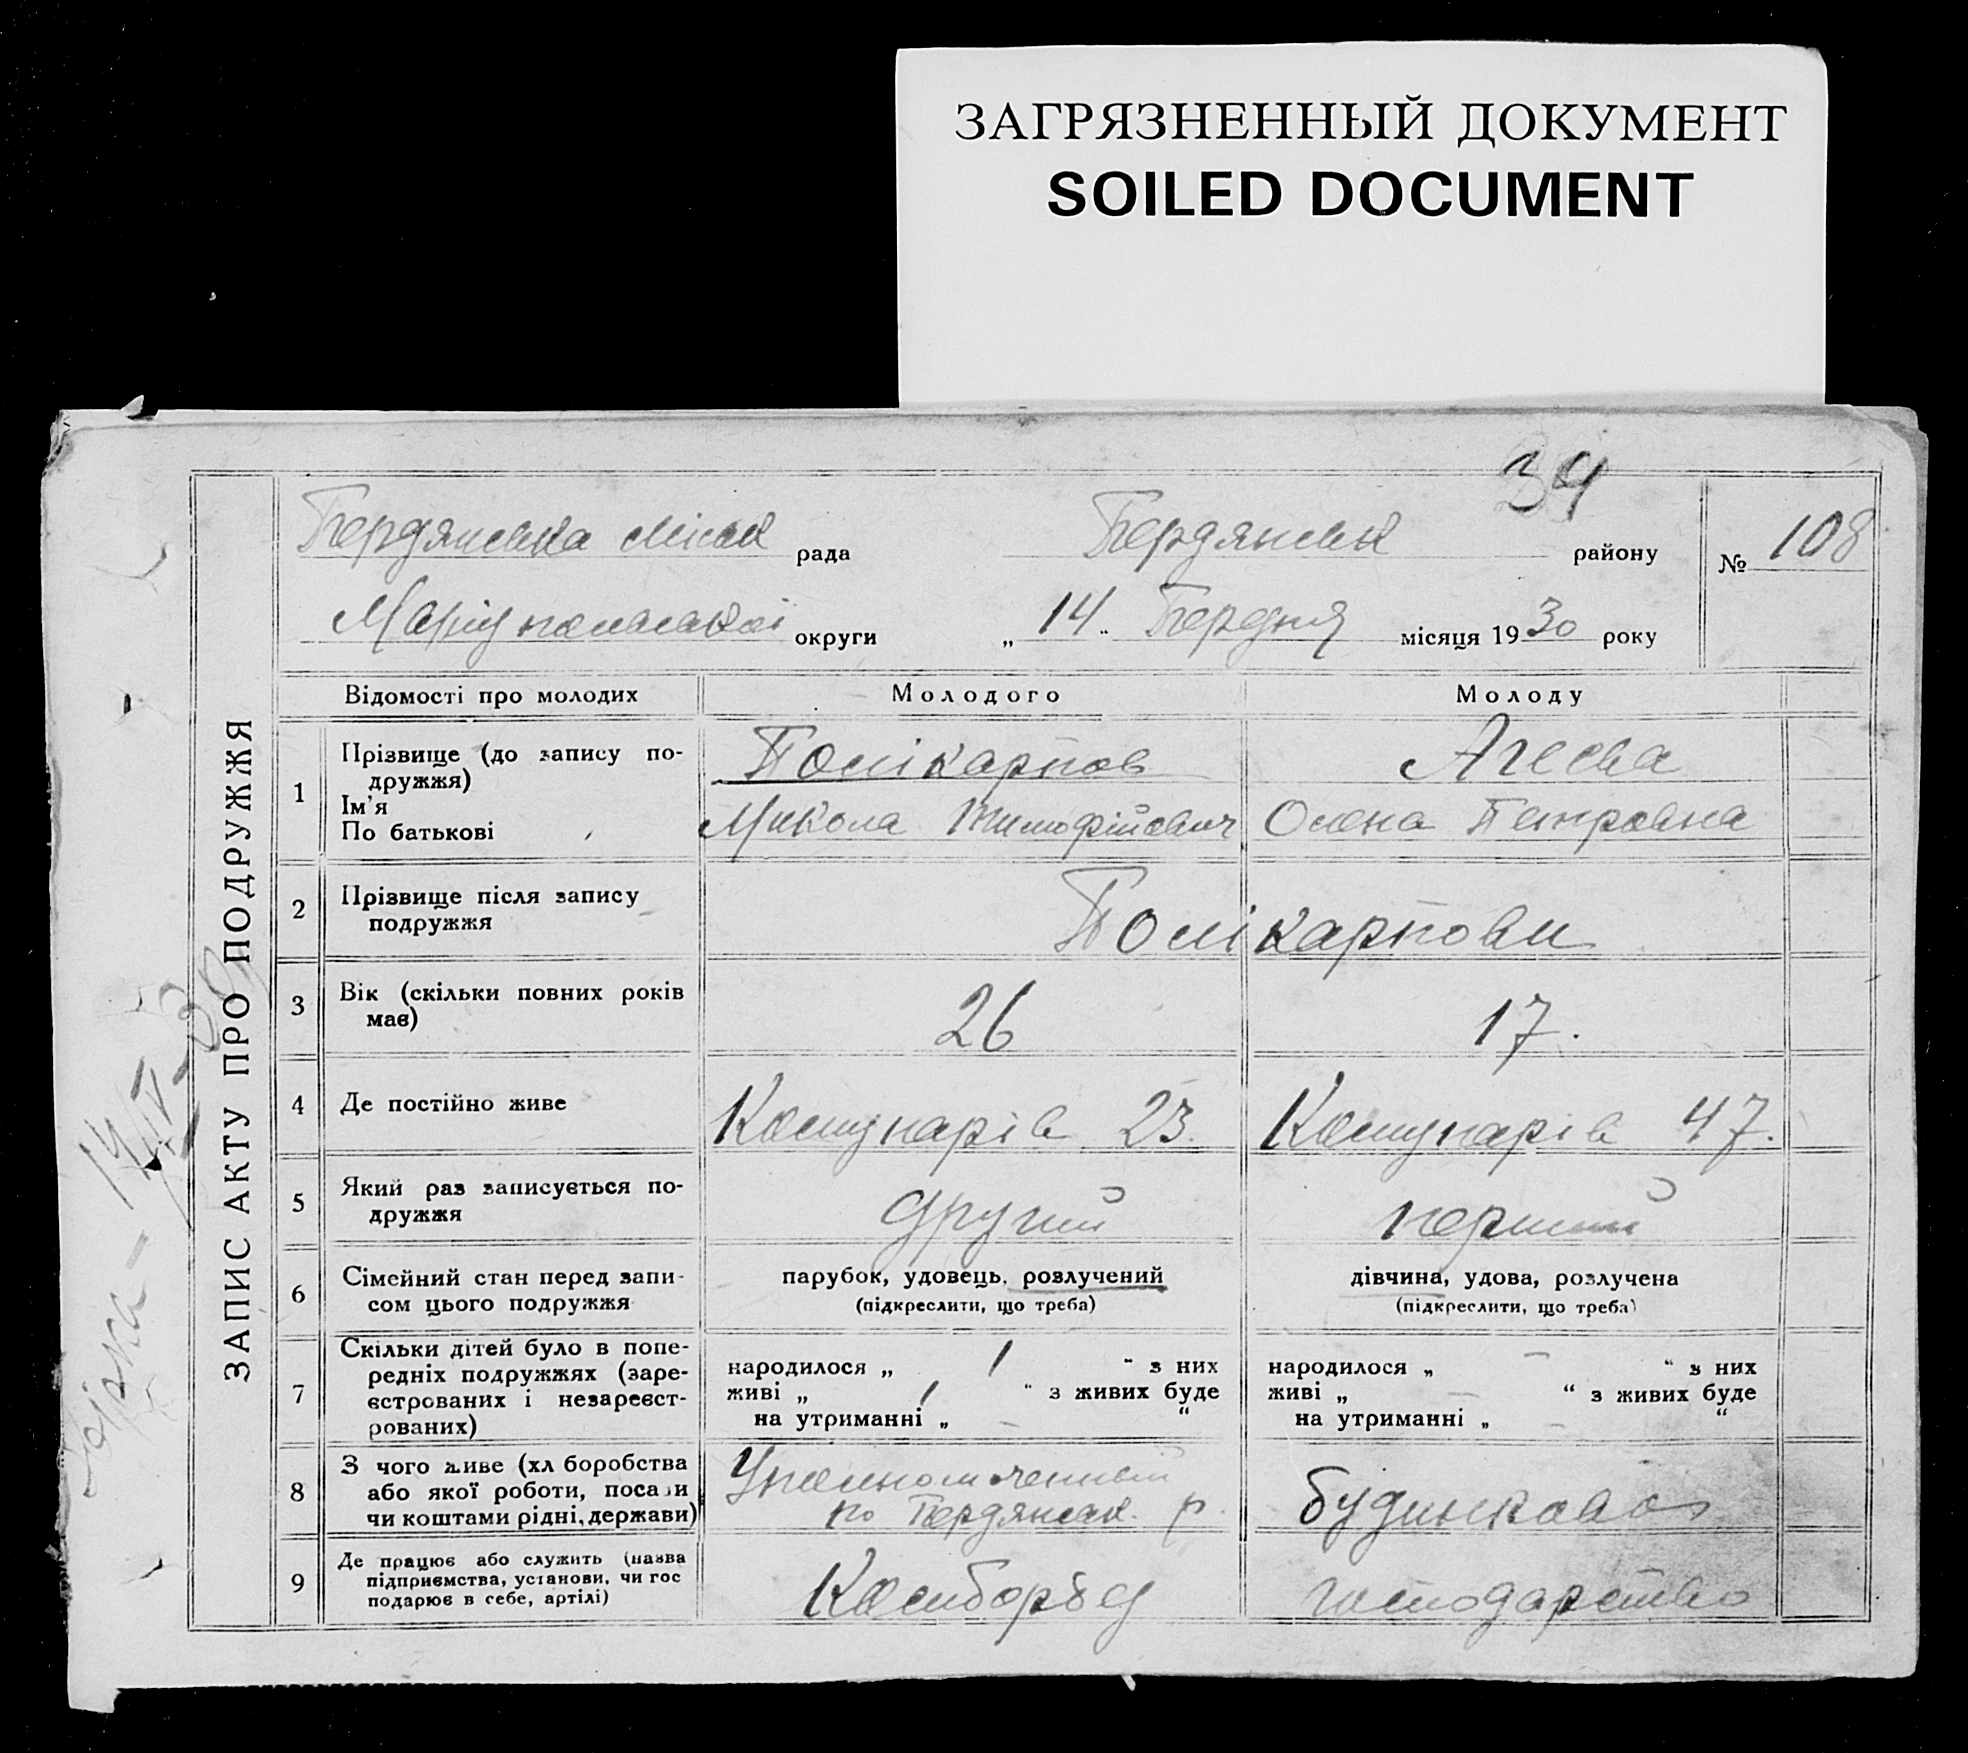 ЗАГРЯЗНЕННЫЙ ДОКУМЕНТ
SOILED DOCUMENT
34
Бердянська міськ рада Бердянськ району № 108
Маріупольської округи „ 14 „ Бердня місяця 1930 року
ЗАПИС АКТУ ПРО ПОДРУЖЖЯ
Відомості про молодих Молодого Молоду
1 Прізвище (до запису по-
дружжя)
Ім'я
По батькові
Полікарпов
Микола Тимофійович
Агеева
Олена Петровна
2 Прізвище після запису
подружжя
Полікарпови
3 Вік (скільки повних років
має)
26 17.
4 Де постійно живе Комунарів 23. Комунарів 47.
5 Який раз записується по-
дружжя
другий перший
6 Сімейний стан перед запи-
сом цього подружжя
парубок, удовець, розлучений
(підкреслити, що треба)
дівчина, удова, розлучена
(підкреслити, що треба)
7 Скільки дітей було в попе-
редніх подружжях (заре-
єстрованих і незареєст-
рованих)
народилося „ 1 “ з них
живі „ 1 “ з живих буде
на утриманні „ – “
народилося „ – “ з них
живі „ – “ з живих буде
на утриманні „ – “
8 З чого живе (хл боробства
або якої роботи, посади
чи коштами рідні, держави)
Уполномоченный
по Бердянськ. р.
будинкове
9 Де працює або служить (назва
підприємства, установи, чи гос
подарює в себе, артілі)
Комборбез
господарство